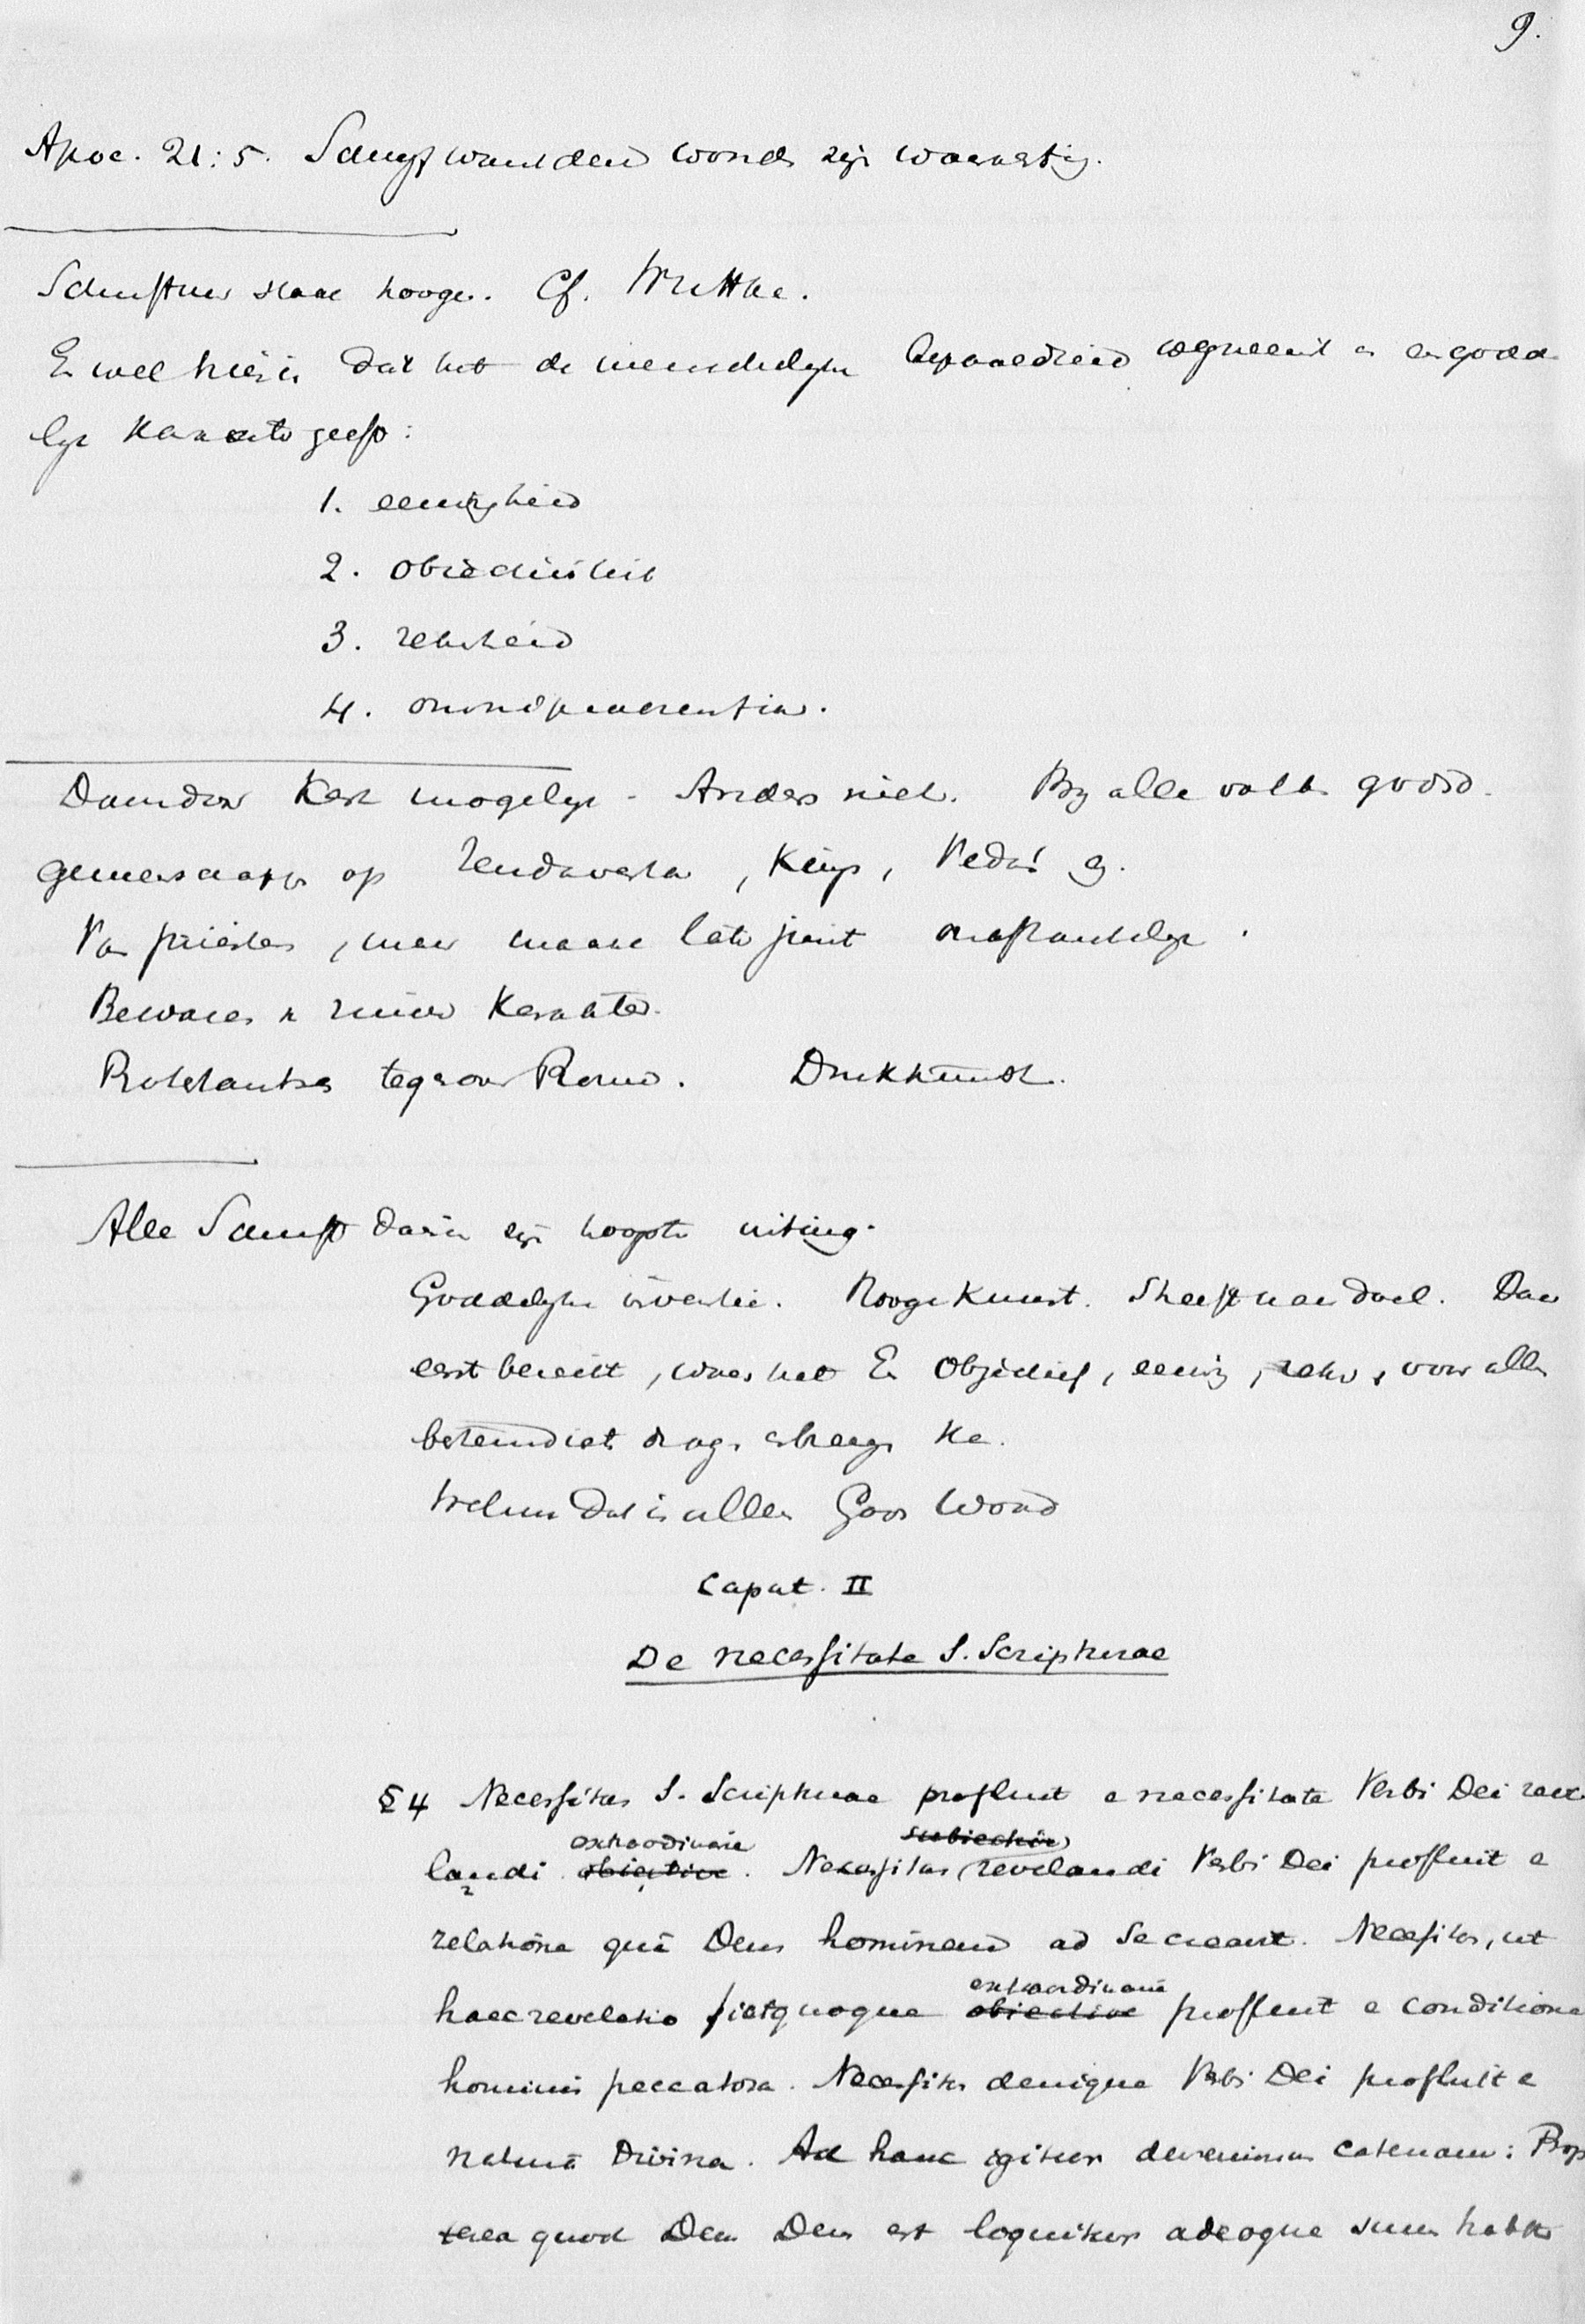 9.
Apoc. 21:5. Schryf want deze woorden zijn waarachtig.
Schrift staat hooger. Cf. Wuttke.
En wel hierin dat het de menschelijke bepaaldheid wegneemt en en godde
lijk karakter geeft:
1. eeuwigheid
2. objectiviteit
3. zekerheid
4. omnipraesentia.
Daardoor Kerk mogelijk. Anders niet. By alle volken godsd.
gemeenschappen op Zendavesta, Kings, Veda's
Van priesters, maar maakt later juist onafhankelijk.
Bewaren zuiver Karakter.
Protestanten tegenover Rome. Drukkunst.
Alle Schrift daarin zijn hoogste uiting.
Goddelijke inventie. Hooge Kunst. Streeft naar doel. Dan
eerst bereikt, waar het Objectief, eeuwig, zeker, voor allen
Welnu dat is alleen Gods Woord
Caput. II
De necessitate S. Scripturae
§4 Necessitas S. Scripturae profluit e necessitate Verbi Dei reve
landi extraordinarie objective. Necessitas subiective revelandi Verbi Dei profluit e
relatione quâ Deus hominem ad se creavit. Necessitas, ut
haec revelatio fiat quoque extraordinarie obiective profluit e conditione
hominis peccatoris. Necessitas denique Verbi Dei profluit e
naturâ Divina. Ad hanc igitur devenimus catenam: Prop
terea quod Deus Deus est loquitur adeoque suum habet